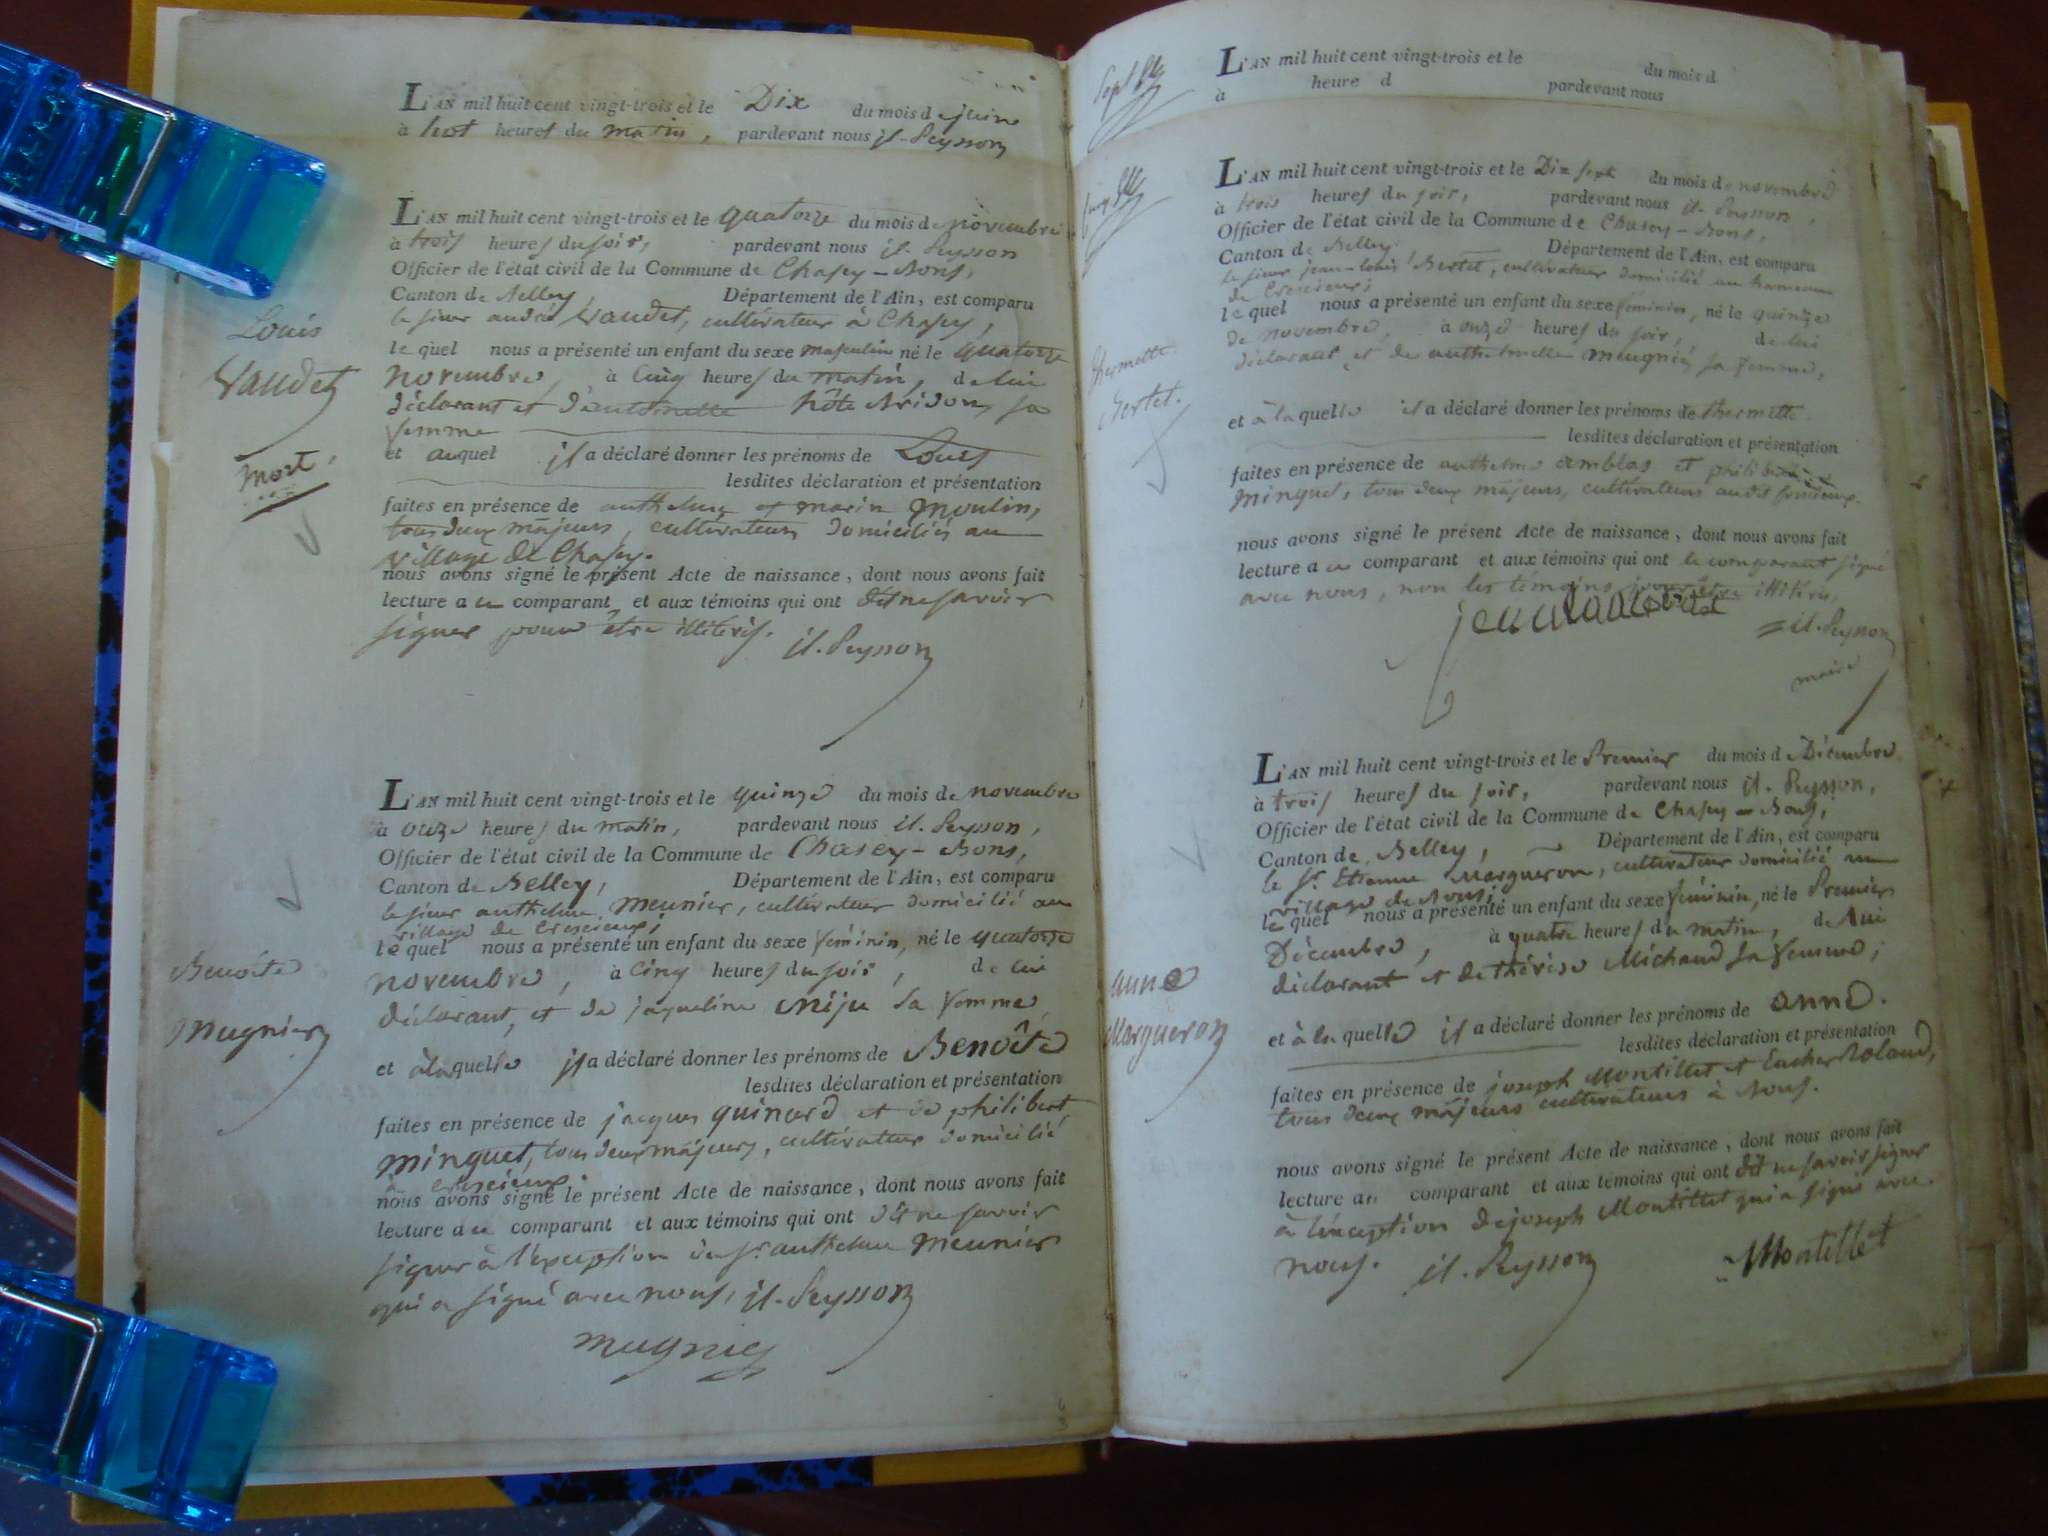 L'AN mil huit cent vingt-trois et le Dix du mois de juin
à huit heures du matin, pardevant nous il. Peysson
L'AN mil huit cent vingt-trois et le quatorze du mois de novembre
à trois heures du soir, pardevant nous il. Peysson
Officier de l'état civil de la Commune de Chasey-Bons,
Canton de Belley, Département de l'Ain, est comparu
le sieur andré Vaudet, cultivateur à Chasey,
le quel nous a présenté un enfant du sexe masculin né le quatorze
novembre, à cinq heures du matin, de lui
déclarant et d'antoinette hôte Bridon, sa
femme
et auquel il a déclaré donner les prénoms de Louis
lesdites déclaration et présentation
faites en présence de anthelme et marin moulin,
tous deux majeurs, cultivateurs domiciliés au
village de Chasey.
nous avons signé le présent Acte de naissance, dont nous avons fait
lecture a ce comparant, et aux témoins qui ont dit ne savoir
signer pour être illiterés. il. Peysson
Louis
Vaudet
mort,
L'AN mil huit cent vingt-trois et le quinze du mois de novembre
à onze heures du matin, pardevant nous il. Peysson,
Officier de l'état civil de la Commune de Chasey-Bons,
Canton de Belley, Département de l'Ain, est comparu
le sieur anthelme meunier, cultivateur domicilié au
village de Cressieux;
le quel nous a présenté un enfant du sexe féminin, né le quatorze
novembre, à cinq heures du soir, de lui
déclarant, et de jaqueline sa femme
et à laquelle il a déclaré donner les prénoms de Benoîte
lesdites déclaration et présentation
faites en présence de jacques quinard et de philibert
minguet, tous deux majeurs, cultivateur domicilié
à cressieux.
nous avons signé le présent Acte de naissance, dont nous avons fait
lecture a ce comparant et aux témoins qui ont dit ne savoir
signer à l'exception du sr. anthelme meunier
qui a signé avec nous, il. Peysson
mugnier
Benoîte
Mugnier
L'AN mil huit cent vingt-trois et le du mois d
à heure d pardevant nous
L'AN mil huit cent vingt-trois et le Dix sept du mois de novembre
à trois heures du soir, pardevant nous il. Peysson,
Officier de l'état civil de la Commune de Chasey-Bons,
Canton de Belley. Département de l'Ain, est comparu
le sieur jean-louis Bertet, cultivateur domicilié au hameau
de Cressieux;
le quel nous a présenté un enfant du sexe féminin, né le quinze
de novembre, à onze heures du soir, de lui
déclarant et de anthelmette meugnier sa femme,
et à laquelle il a déclaré donner les prénoms de thermette.
lesdites déclaration et présentation
faites en présence de anthelme et philibert
minguet, tous deux majeurs, cultivateurs audit
nous avons signé le présent Acte de naissance, dont nous avons fait
lecture a ce comparant et aux témoins qui ont le comparant signé
avec nous, non les témoins pour être illiterés,
il. Peysson
maire
thermette
Bertet.
L'AN mil huit cent vingt-trois et le Premier du mois de Décembre
à trois heures du soir, pardevant nous il. Peysson,
Officier de l'état civil de la Commune de Chasey-Bons,
Canton de Belley, Département de l'Ain, est comparu
le sr. Etienne Margueron, cultivateur domicilié au
village de Bons;
le quel nous a présenté un enfant du sexe féminin, né le Premier
Décembre, à quatre heures du matin, de lui
déclarant et de thérèse Michaud sa femme;
et à laquelle il a déclaré donner les prénoms de anne.
lesdites déclaration et présentation
faites en présence de joseph Montillet et Roland,
tous deux majeurs cultivateurs à Bons.
nous avons signé le présent Acte de naissance, dont nous avons fait
lecture au comparant et aux témoins qui ont dit ne savoir signer
à l'exception de joseph Montillet qui a signé avec
nous. il. Peysson Montillet
anne
Margueron